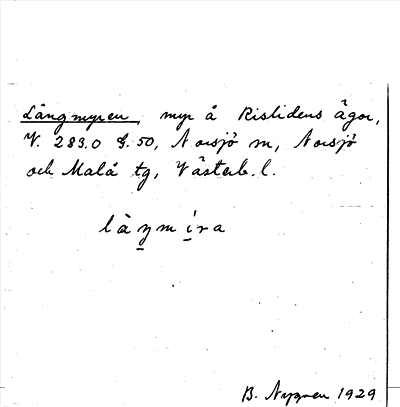 Långmyren, myr å Rislidens ägor,
V. 283.0 S. 50, Norsjö sn, Norsjö
och Malå tg, Västerb. l.
làŋmíra
B. Nygren 1929